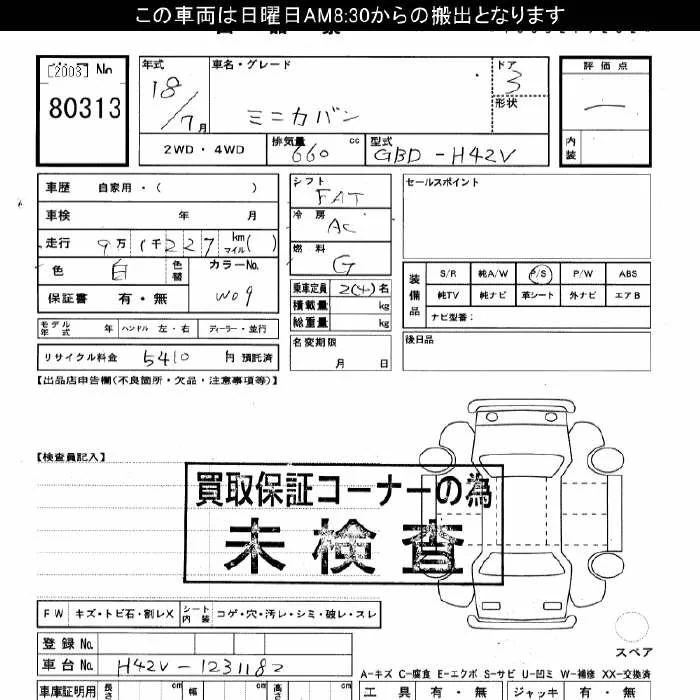 この車両は日曜日AM8:30からの搬出となります
[2003] No
80313
年式 18/7月
車名・グレード ミニカバン
ドア 3
形状
評価点 一
内装
2WD・4WD
排気量 660 cc
型式 GBD-H42V
車歴 自家用・( )
車検 年 月
走行 9万1千227 km マイル( )
色 白 色替
カラーNo. W09
保証書 有・無
モデル年式 年 ハンドル 左・右 ディーラー・並行
リサイクル料金 5410 円 預託済
シフト FAT
冷房 AC
燃料 G
乗車定員 2(4)名
積載量 kg
総重量 kg
名変期限
月 日
セールスポイント
装備品
S/R 純A/W P/S P/W ABS
純TV 純ナビ 革シート 外ナビ エアB
ナビ型番:
後日品
【出品店申告欄(不良箇所・欠品・注意事項等)】
【検査員記入】
買取保証コーナーの為
未検査
FW キズ・トビ石・割レX シート内装 コゲ・穴・汚レ・シミ・破レ・スレ
登録No.
車台No. H42V-1231182
車庫証明用 長さ cm 幅 cm 高さ cm
スペア
A-キズ C-腐食 E-エクボ S-サビ U-凹ミ W-補修 XX-交換済
工具 有・無 ジャッキ 有・無